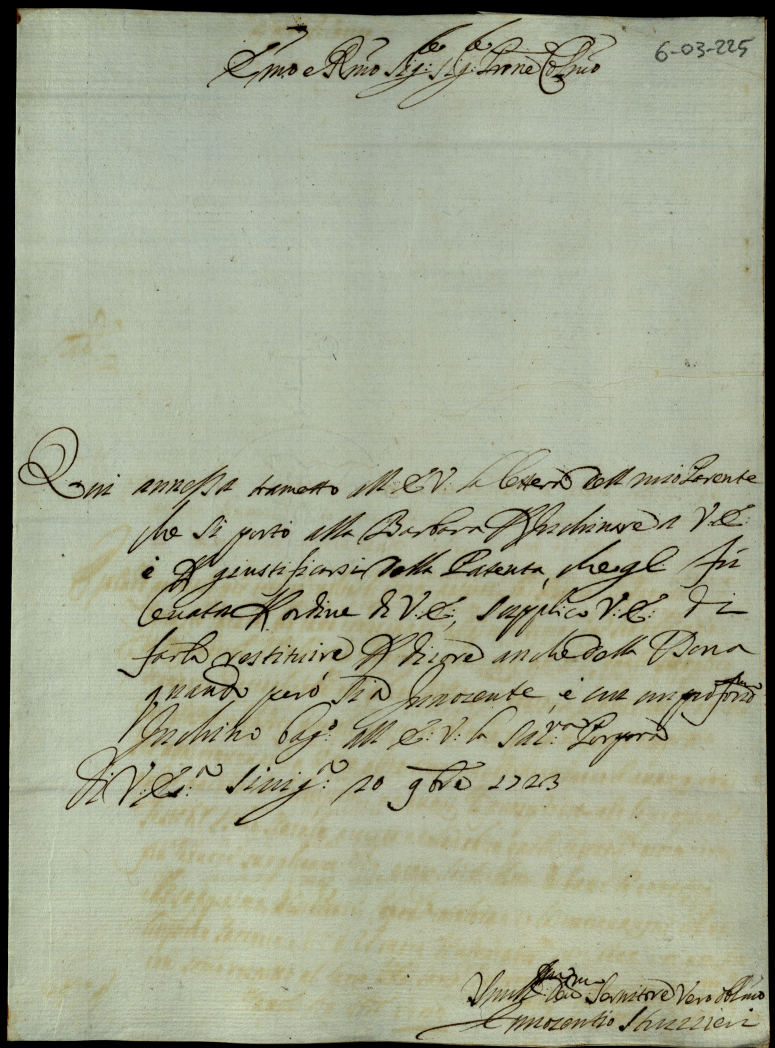 6-03-225
Emo e Rmo Sig:re Sig:re Prone Colmo
Qui annessa trametto all E.V. la lettera dell mio Parente
che si portò alla Barbara P inchinare a V.E.
è P giustificarsi della Patenta, che gl fù
levata P ordine di V.E., supplico V.E. di
farla restituire P dicore anche della
quando però sia Innocente, è con un profondmo
Inchino bagio all E.V. la Sac:ra Porpora
di V.E.a Sinig.a 20 9bre 1723
Servitore vero oblmo
Innocentio Struzzieri